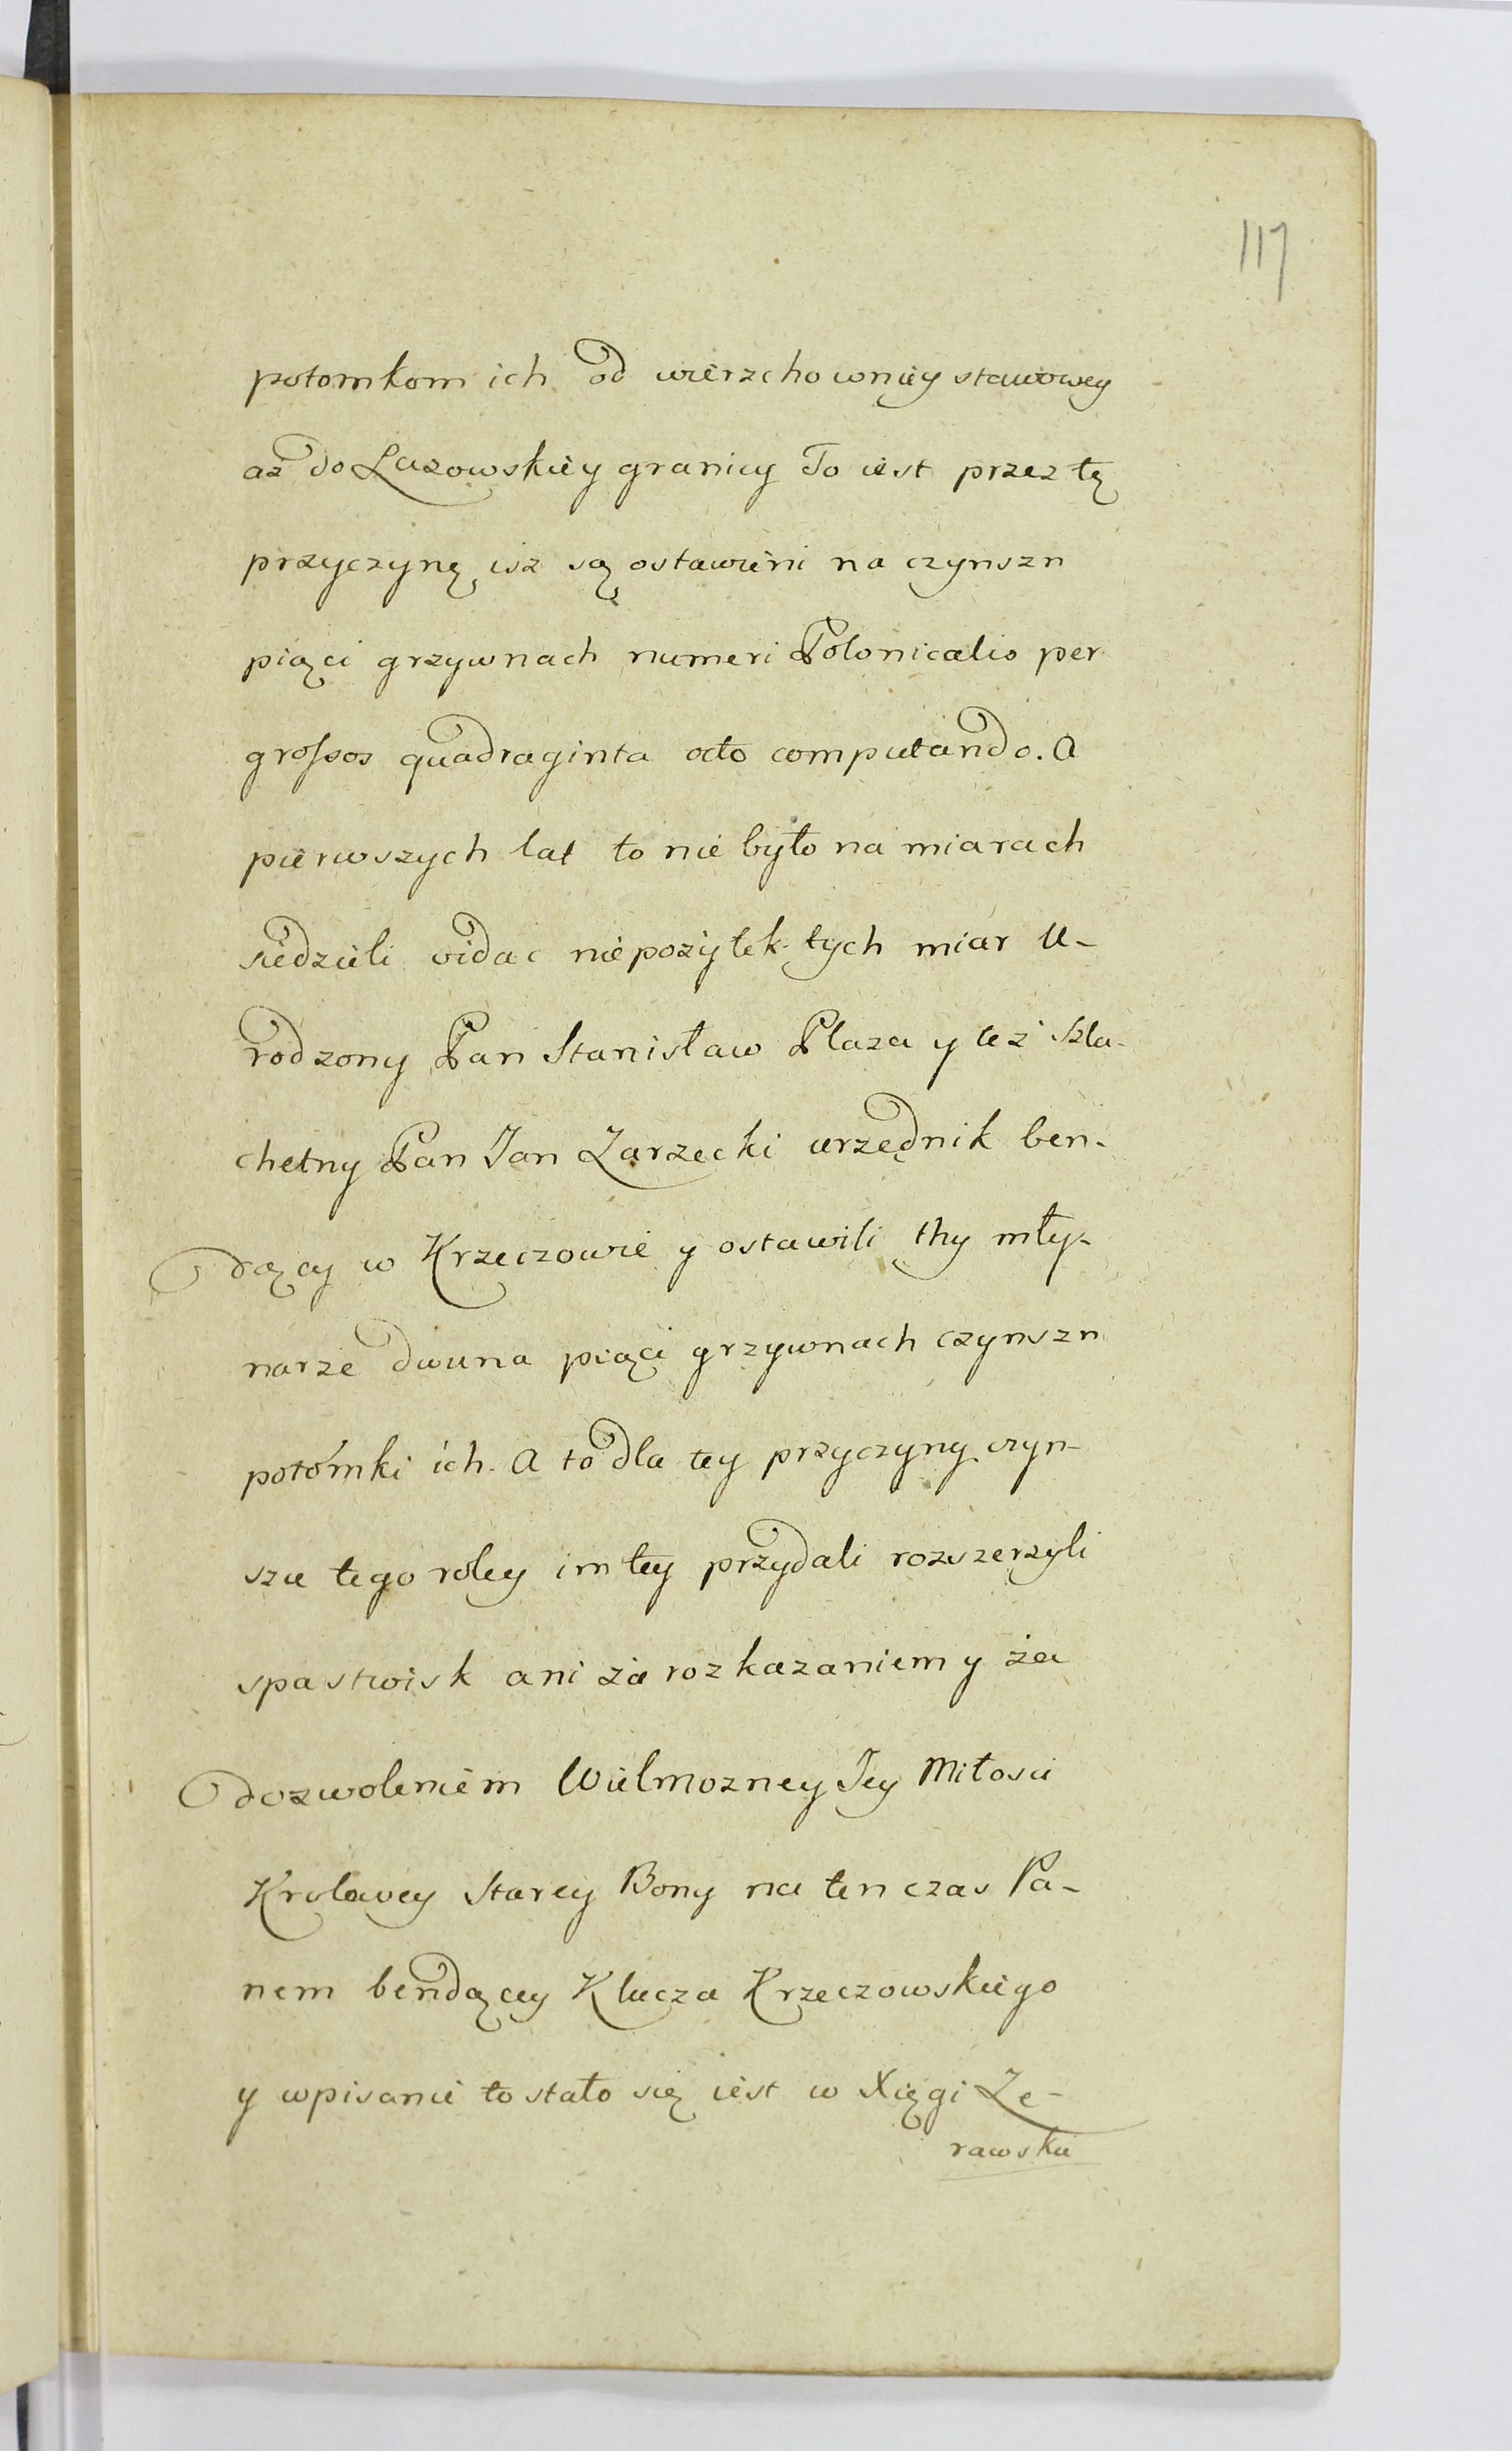 117
potomkom ich od wierzchowniey stawowey
aż do Lazowskiey granicy To iest przez tę
przyczynę isz są ostawieni na czynszu
piąci grzywnach numeri Polonicalis per
grossos quadraginta octo computando. A
pierwszych lat to nie było na miarach
siedzieli vidac niepożytek tych miar U-
rodzony Pan Stanisław Płaza y też Szla-
chetny Pan Jan Zarzecki urzędnik ben-
dący w Krzeczowie y ostawili thy mły-
narze dwuna piąci grzywnach czynszu
potómki ich. A to dla tey przyczyny czyn-
szu tego roley im tey przydali rozszerzyli
spastwisk ani za rozkazaniem y za
dozwoleniem Wielmozney Jey Miłosci
Krolavey Starey Bony na ten czas Pa-
nem bendącey Klucza Krzeczowskiego
y wpisanie to stało się iest w Xięgi Ze-
rawskie